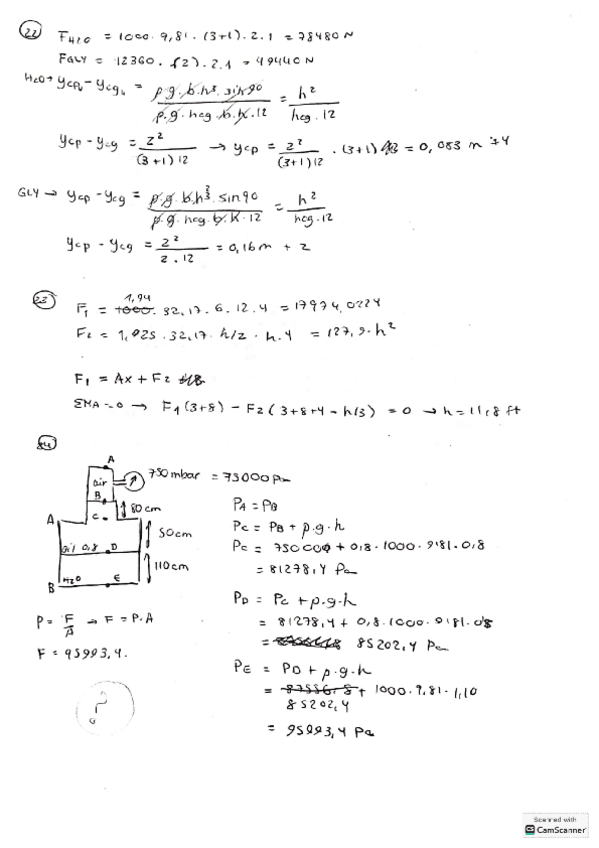 22 F H2O = 1000 . 9,81 . (3+1) . 2.1 = 78480 N
FGLY = 12360 . (2) . 2.1 = 49440 N
H2O → ycp - ycg = ρ.g.b.h³.sin90 / ρ.g.hcg.b.h.12 = h² / hcg.12
ycp - ycg = 2² / (3+1)12 → ycp = 2² / (3+1)12 . (3+1) = 0,083 m + 4
GLY → ycp - ycg = ρ.g.b.h³.sin90 / ρ.g.hcg.b.h.12 = h² / hcg.12
ycp - ycg = 2² / 2.12 = 0,16 m + 2
23 F1 = 1,94 1000. 32,17. 6. 12. 4 = 17974,0224
F2 = 1,025. 32,17. h/2. h. 4 = 127,9. h²
F1 = Ax + F2
ΣMA = 0 → F1(3+8) - F2(3+8+4-h/3) = 0 → h = 11,8 ft
84
A
air
750 mbar = 75000 Pa
B
80 cm
A
C
50 cm
Oil 0,8
D
110 cm
B
H2O
E
P = F/A → F = P.A
F = 95993,4.
?
PA = PB
PC = PB + ρ.g.h
PC = 75000 + 0,8. 1000. 9,81. 0,8
= 81278,4 Pa
PD = PC + ρ.g.h
= 81278,4 + 0,8. 1000. 9,81. 0,5
= 85202,4 Pa
PE = PD + ρ.g.h
= 87556,8 + 1000. 9,81. 1,10
85202,4
= 95993,4 Pa
Scanned with
CS CamScanner